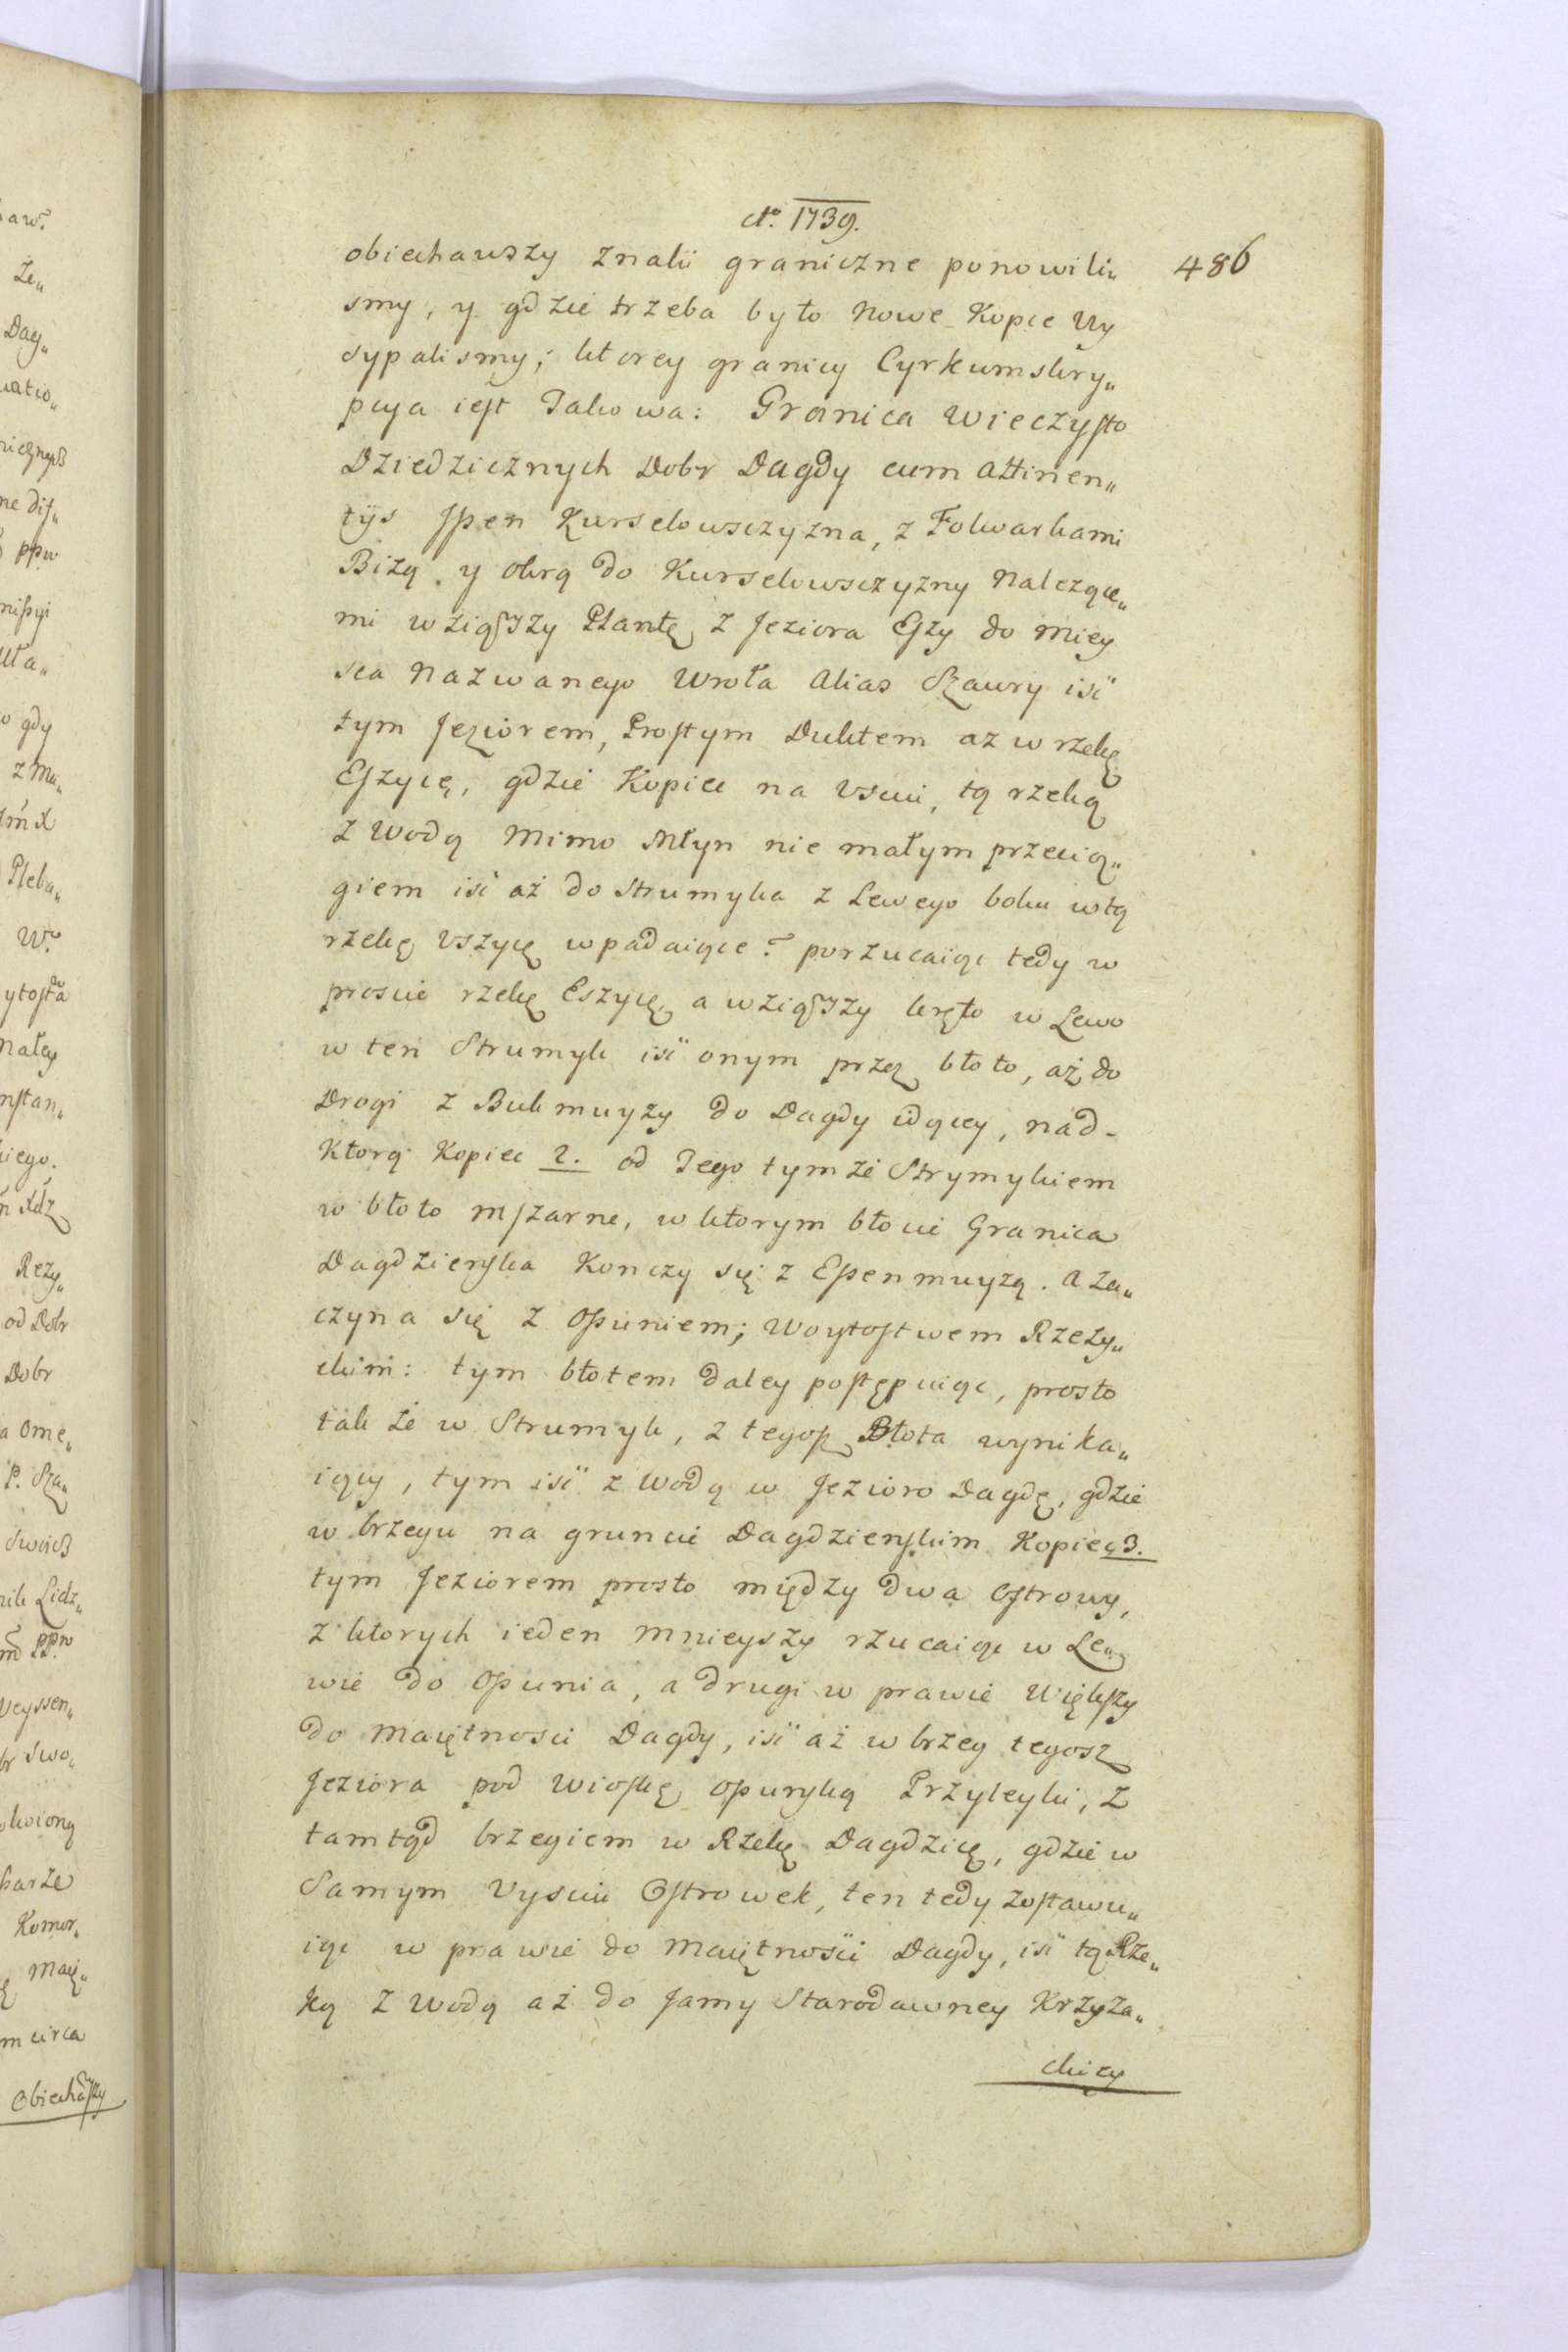 Ao. 1739.
486
obiechawszy znaki graniczne ponowili„
smy, y gdzie trzeba było nowe Kopce Wy
sypalismy; ktorey granicy Cyrkumskry„
pcya iest Takowa: Granica wieczysto
Dziedzicznych Dobr Dagdy cum attinen„
tijs Kurselowszczyzna, z Folwarkami
Bizą y Okrą do Kurselowszczyzny nalezące„
mi wziąszy Plantę z Jeziora Eszy do miey
sca nazwanego Wrota alias Szaury iść
tym Jeziorem, Prostym Duktem az w rzekę
Eszycę, gdzie Kopiec na Vsciu, tą rzeką
z Wodą Mimo Młyn nie małym przecią„
giem iść aż do Strumyka z Lewego boku w tą
rzekę Vszycę wpadaiące? porzucaiąc tedy w
proscie rzekę Eszycę, a wziąszy kręto w Lewo
w ten Strumyk iść onym przez błoto, aż do
Drogi z Bukmuyzy do Dagdy idącey, nad-
Ktorą Kopiec 2. od Tego tymże Strymykiem
w błoto mszarne, w ktorym błocie Granica
Dagdzienska Konczy się z Espenmuyzą. a za„
czyna się z Opuniem; Woytostwem Rzezy„
ckim: tym błotem daley postępuiąc, prosto
takze w Strumyk, z tegosz Błota wynika„
iący, tym iść z Wodą w Jezioro Dagdę, gdzie
w brzegu na gruncie Dagdzienskim Kopiec 3.
tym Jeziorem prosto między dwa Ostrowy,
z ktorych ieden mnieyszy rzucaiąc w Le„
wie do Opunia, a drugi w prawie Większy
do Maiętnosci Dagdy, iść aż w brzeg tegosz
Jeziora pod Wioskę Opunską Przyleyki, z
tamtąd brzegiem w Rzekę Dagdzicę, gdzie w
Samym Vysciu Ostrowek, ten tedy zostawu„
iąc w prawie do Maiętnosci Dagdy, iść tą Rze„
ką z Wodą aż do Jamy Starodawney Krzyza„
ckiey